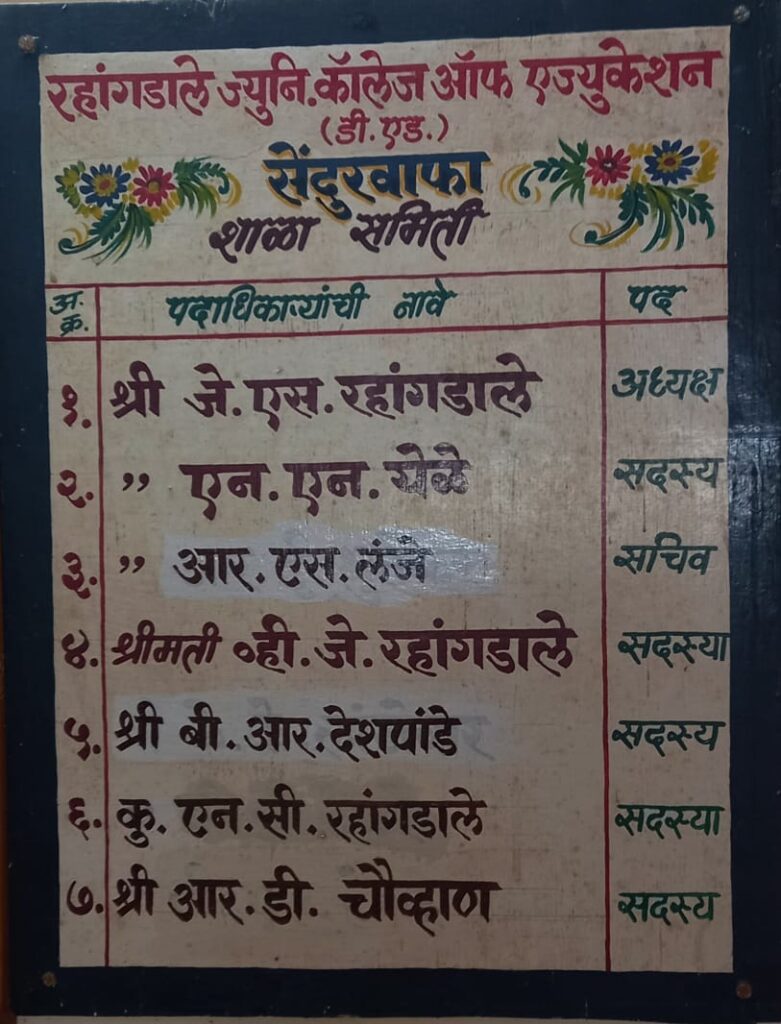 रहांगडाले ज्युनि.कॉलेज ऑफ एज्युकेशन
(डी.एड.)
सेंदुरवाफा
शाळा समिती
अ.क्र. पदाधिकाऱ्यांची नावे पद
१. श्री जे.एस.रहांगडाले अध्यक्ष
२. ,, एन.एन.येळे सदस्य
३. ,, आर.एस.लंजे सचिव
४. श्रीमती व्ही.जे.रहांगडाले सदस्या
५. श्री बी.आर.देशपांडे सदस्य
६. कु. एन.सी.रहांगडाले सदस्या
७. श्री आर.डी. चौव्हाण सदस्य